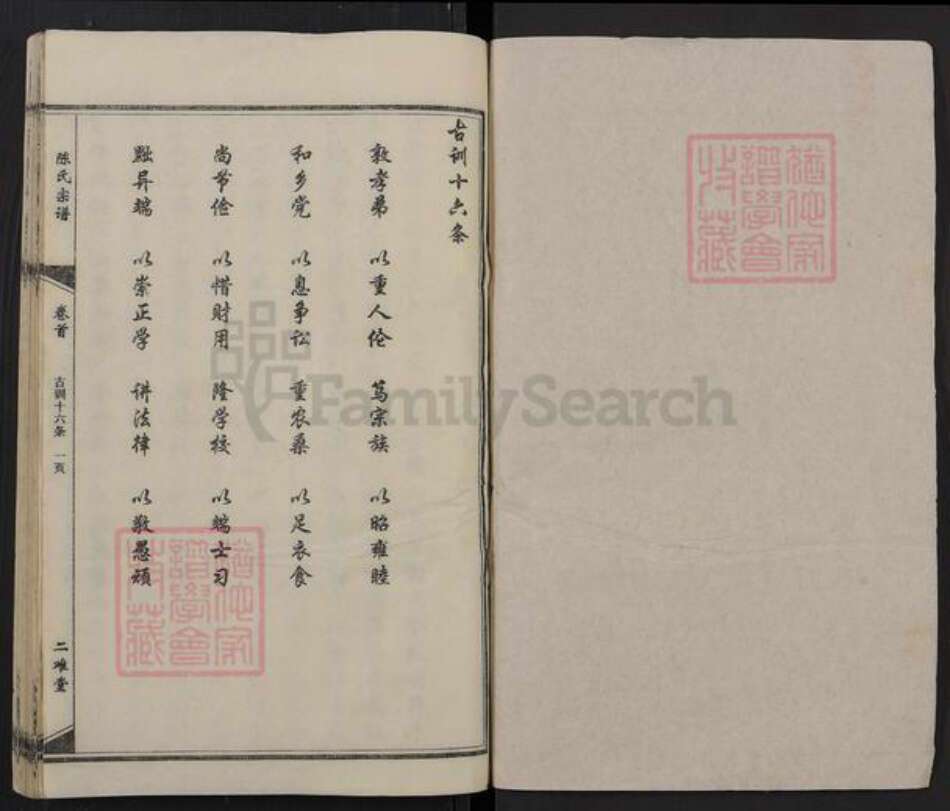 古训十六条
敦孝弟 以重人伦 笃宗族 以昭雍睦
和乡党 以息争讼 重农桑 以足衣食
尚节俭 以惜财用 隆学校 以端士习
黜异端 以崇正学 讲法律 以儆愚顽
陈氏宗谱
卷首
古训十六条 一页
二难堂
猶他家
譜學會
收藏
猶他家
譜學會
收藏
FamilySearch